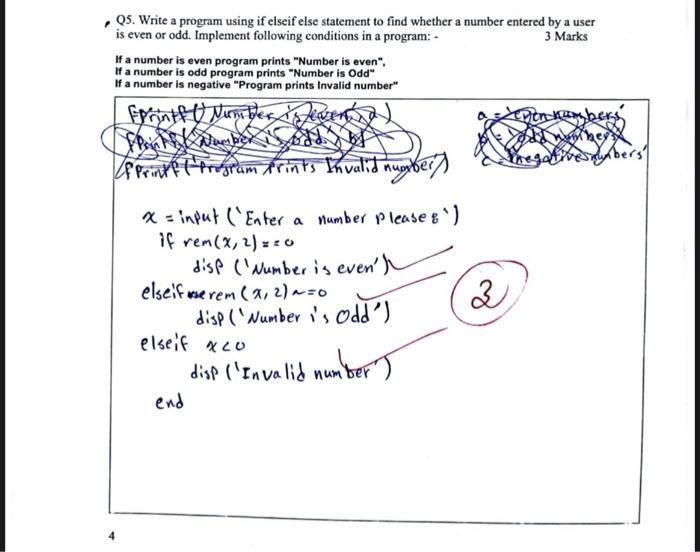 Q5. Write a program using if elseif else statement to find whether a number entered by a user
is even or odd. Implement following conditions in a program: - 3 Marks
If a number is even program prints "Number is even",
If a number is odd program prints "Number is Odd"
If a number is negative "Program prints Invalid number"
fprintf('Number is even', a) a = 'even numbers'
fprintf('Number is odd', b) b = 'odd numbers'
fprintf('Program prints Invalid number') c = 'negative numbers'
x = input ('Enter a number please : ')
if rem(x, 2) == 0
disp ('Number is even')
elseif rem (x, 2) ~= 0
disp ('Number is Odd')
3
elseif x < 0
disp ('Invalid number')
end
4